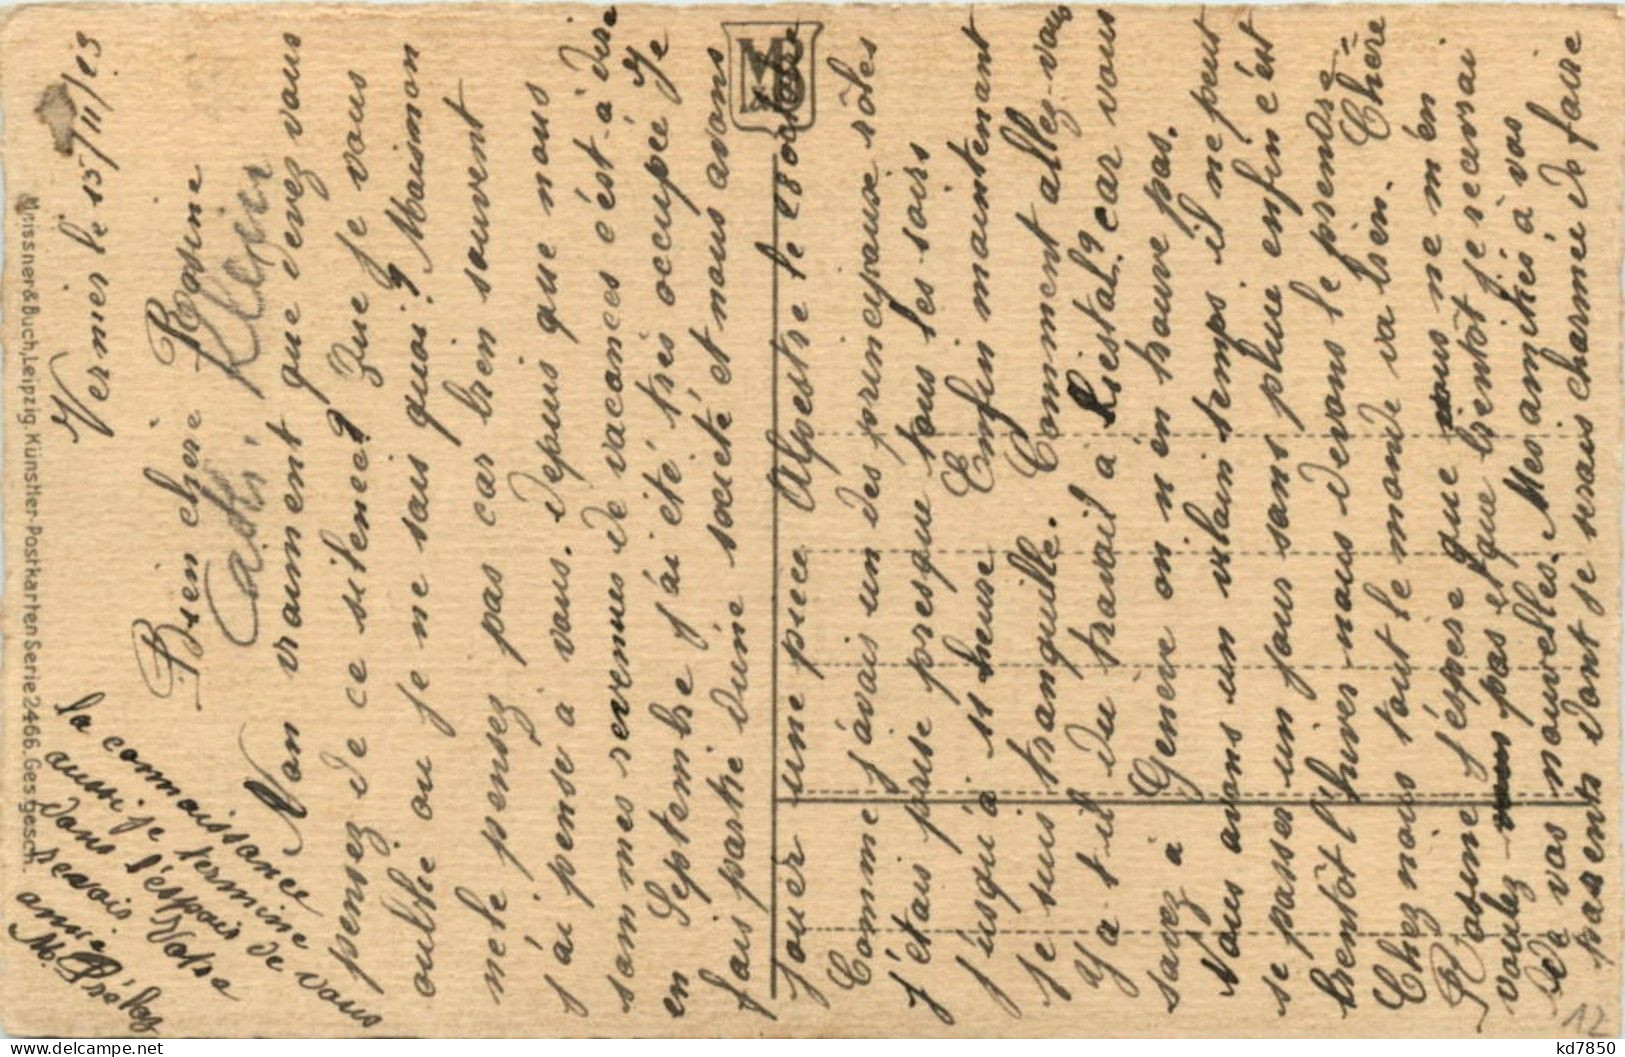 Vernier le 15/11/13
Bien chère Rosine
Cath. Klein
Non vraiment que devez vous
pensez de ce silence? Que je vous
oublie ou je ne sais quoi? Maismon
nele pensez pas car bien souvent
j'ai pensé à vous. depuis que nous
sommes revenues de vacances c'est-à-dire
en Septembre j'ai été très occupée Je
fais partie d'une société et nous avons
jouer une pièce Alpestre le 28 octobre
Comme j'avais un des principaux rôles
j'étais prise presque tous les soirs
j'usqu'à 11 heure Enfin maintenant
je suis tranquille. Comment allez-vous
Y a-t-il du travail à Liestal? car vous
savez à Genève on n'en trouve pas.
Nous avons un vilain temps il ne peut
se passer un jour sans pluie enfin c'est
bientôt l'hiver nous devons le prendre
Chez nous tout le monde va bien. Chère
Rosine j'espère que vous ne m'en
voulez pas et que bientôt je recevrai
de vos nouvelles. Mes amitiés à vos
parents dont je serais charmée de faire
la connaissance
aussi je termine
dans l'espoir de vous
revoir. Votre
amie
M. Prélaz
Meissner&Buch, Leipzig. Künstler-Postkarten Serie 2466. Ges. gesch.
M&B
12
kd7850